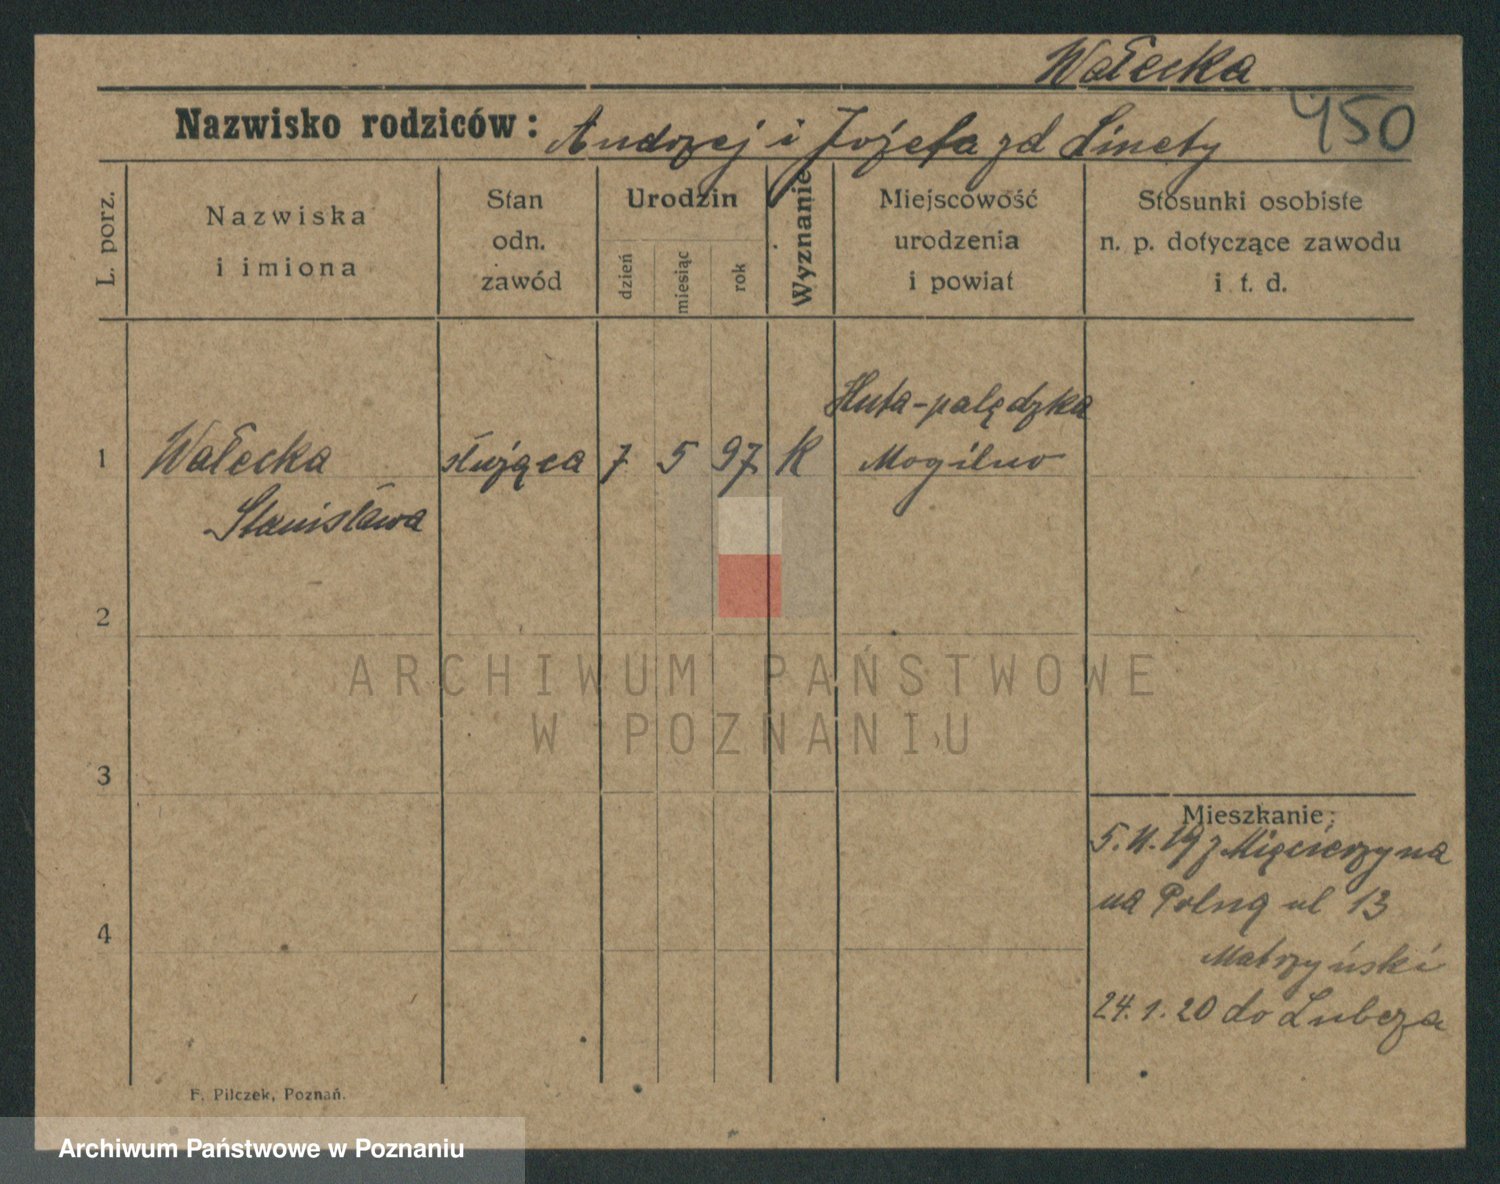 Wałecka
450
Nazwisko rodziców: Andrzej i Józefa zd Linety
L. porz.
Nazwiska
i imiona
Stan
odn.
zawód
Urodzin
dzień
miesiąc
rok
Wyznanie
Miejscowość
urodzenia
i powiat
Stosunki osobiste
n. p. dotyczące zawodu
i t. d.
Huta-palędzka
1 Wałecka służąca 7 5 97 K Mogilno
Stanisława
2
ARCHIWUM PAŃSTWOWE
W POZNANIU
3
Mieszkanie:
5. 11. 19 z Mięcierzyna
na Polną ul 13
4
24. 1. 20 do Lubcza
F. Pilczek, Poznań.
Archiwum Państwowe w Poznaniu